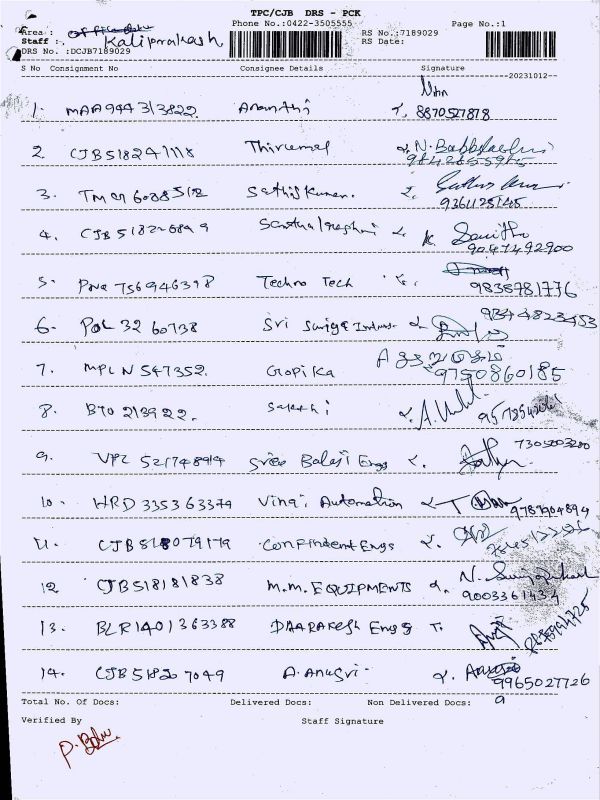 TPC/CJB DRS - PCK
Phone No.:0422-3505555
Page No.:1
Area :
Staff : Kaliprakash
RS No.:7189029
RS Date:
DRS No. :DCJB7189029
S No Consignment No Consignee Details Signature
20231012
1. MAA944313822 Ananthi 8870527878
2. CJB518241118 Thirumal N.
3. Sathiskumar. 9361125145
4. Santhalakshmi K. Savitha 9047492900
5. PNA 756946398 Techno Tech 9838781776
6. POL 3260738 Sri Suriya 9344823453
7. MPL N 547352. Gopika 9750860185
8. B70 213922. A.
9. VPZ 521748914 Sree Balaji Engs 7305003200
10. HRD 335363379 Vinai Automation 9787904894
11. CJB518079179 Confindent Engs
12 CJB518181838 M.M. EQUIPMENTS N. 9003361434
13. BLR1401363388 DAARAKESH Engg
14. CJB518207049 A. Anusri 9965027726
Total No. Of Docs: Delivered Docs: Non Delivered Docs: 9
Verified By Staff Signature
P. Babu